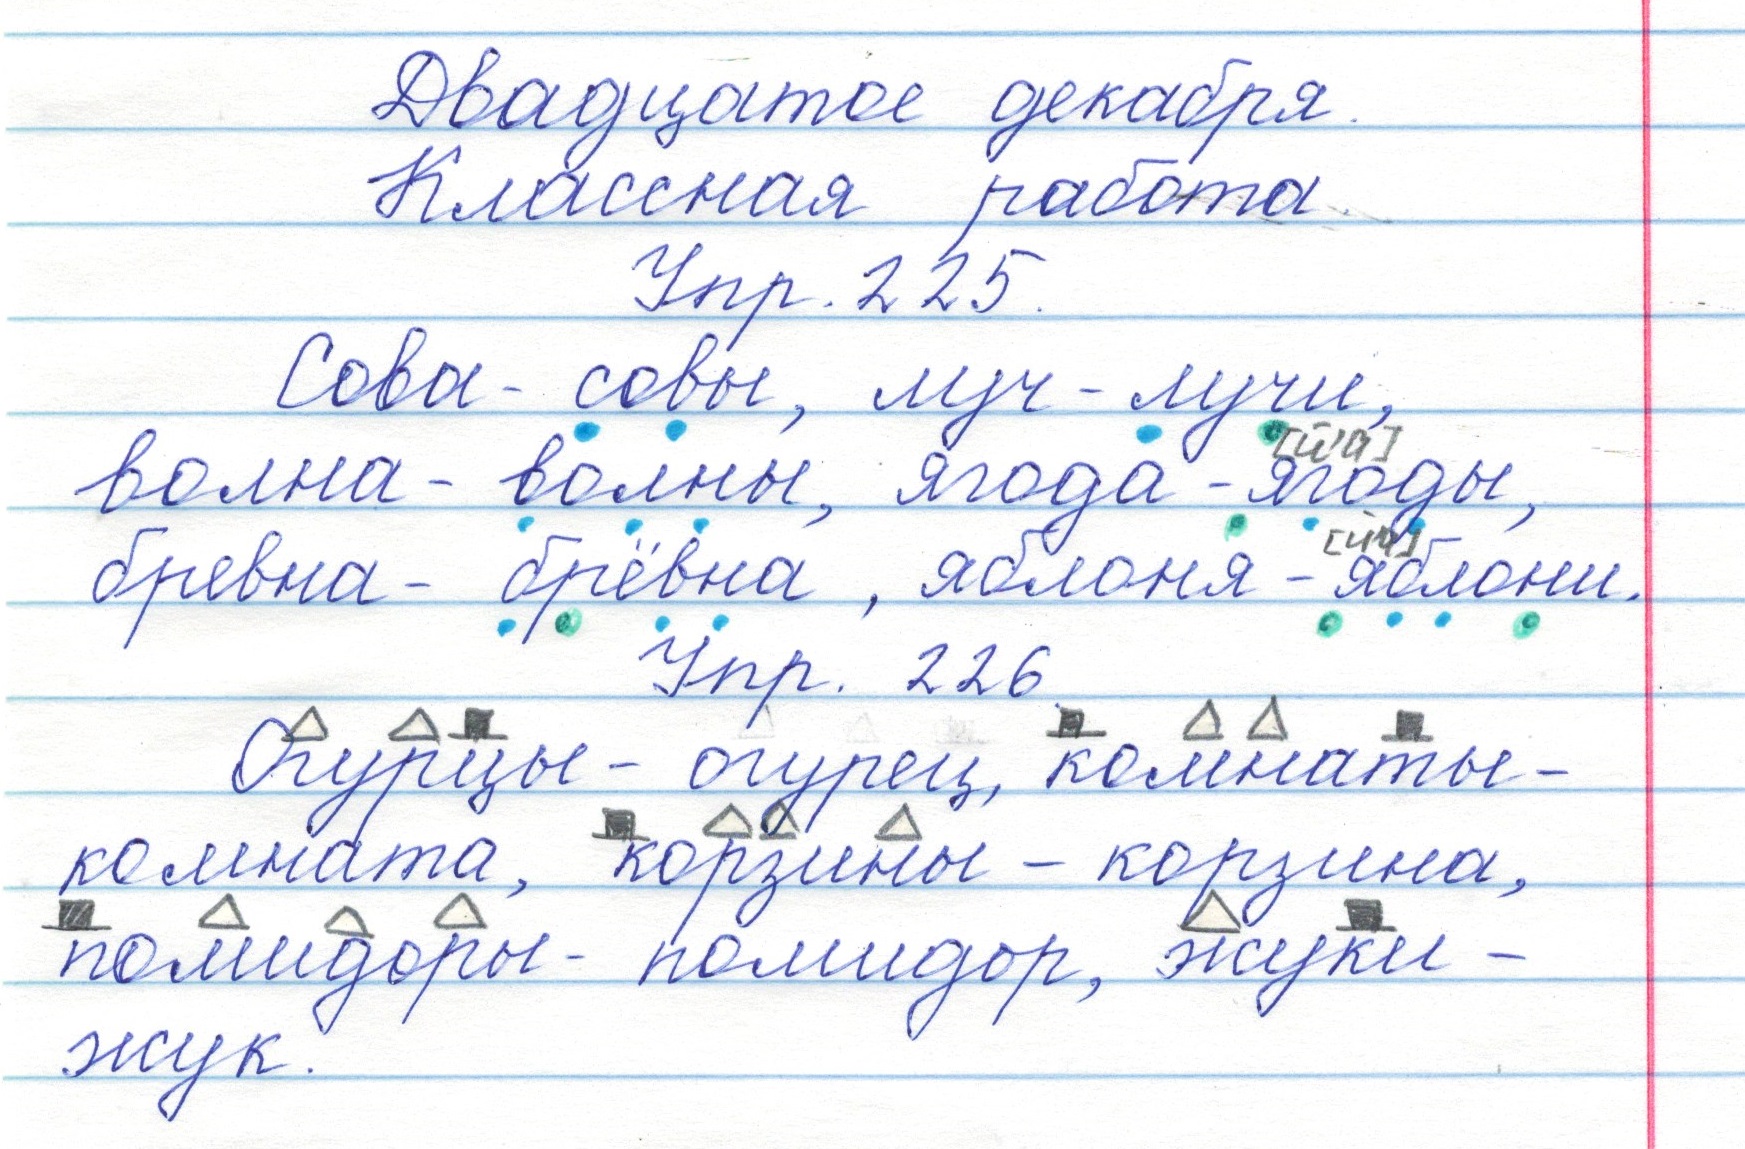 Двадцатое декабря.
Классная работа
Упр. 225.
Сова - совы, луч - лучи,
[й'а]
волна - волны, ягода - ягоды,
[й'а]
бревна - брёвна, яблоня - яблони.
Упр. 226
Огурцы - огурец, комнаты -
комната, корзины - корзина,
помидоры - помидор, жуки -
жук.